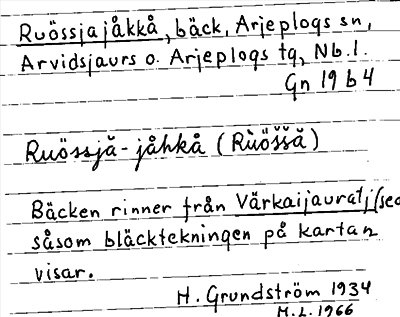 Ruössjajåkkå, bäck, Arjeplogs sn,
Arvidsjaurs o. Arjeplogs tg, Nb. l.
Gn 19 b 4
Ruössjă-jåhkå (Rùöš̌šă)
Bäcken rinner från Värkaijauratj (se
såsom bläcktekningen på kartan
visar.
H. Grundström 1934
M.L. 1966